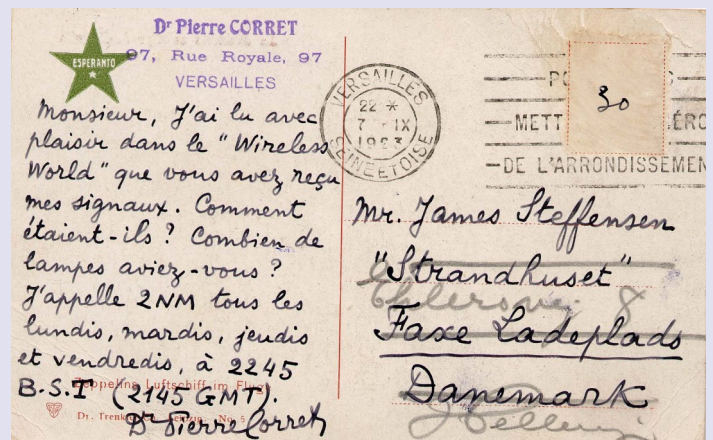 Dr Pierre CORRET
97, Rue Royale, 97
VERSAILLES
ESPERANTO
Monsieur, J'ai lu avec
plaisir dans le "Wireless
World" que vous avez reçu
mes signaux. Comment
étaient-ils ? Combien de
lampes aviez-vous ?
J'appelle 2NM tous les
lundis, mardis, jeudis
et vendredis, à 2245
B.S.T (2145 GMT).
Dr Pierre Corret
Zeppelins Luftschiff im Flug
Dr. No. 5
VERSAILLES
22 *
7 IX
SEINE ET OISE
30
METT
DE L'ARRONDISSEMEN
Mr. James Steffensen
"Strandhuset"
Faxe Ladeplads
Danemark